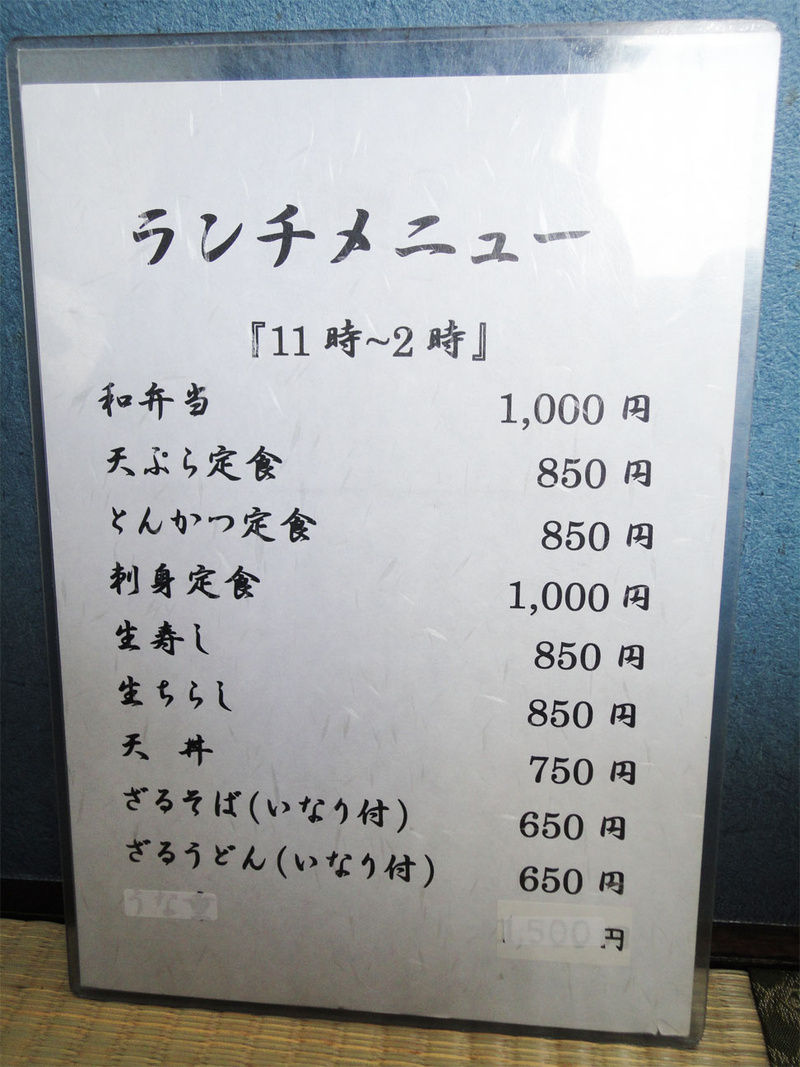 ランチメニュー
『11時~2時』
和弁当 1,000円
天ぷら定食 850円
とんかつ定食 850円
刺身定食 1,000円
生寿し 850円
生ちらし 850円
天 丼 750円
ざるそば(いなり付) 650円
ざるうどん(いなり付) 650円
1,500円